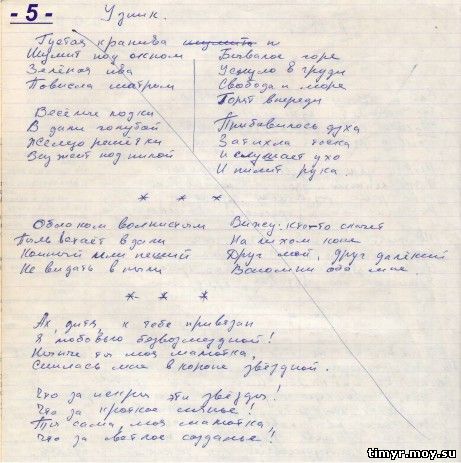 - 5 -
Узник.
Густая крапива шумит п
Шумит под окном
Зелёная ива
Повисла шатром
Весёлые лодки
В дали голубой
Железо решётки
Визжит под пилой
Бывалое горе
Уснуло в груди
Свобода и море
Горят впереди
Прибавилось духа
Затихла тоска
И слушает ухо
И пилит рука.
* * *
Облаком волнистым
Пыль встаёт вдали
Конный или пеший
Не видать в пыли
Вижу: кто-то скачет
На лихом коне
Друг мой, друг далёкий
Вспомни обо мне.
* * *
Ах, дитя, к тебе привязан
Я любовью безвозмездной!
Нынче ты моя малютка,
Снилась мне в короне звёздной.
Что за искры эти звёзды!
Что за кроткое сиянье!
Ты сама, моя малютка,
Что за светлое созданье!
timyr.moy.su